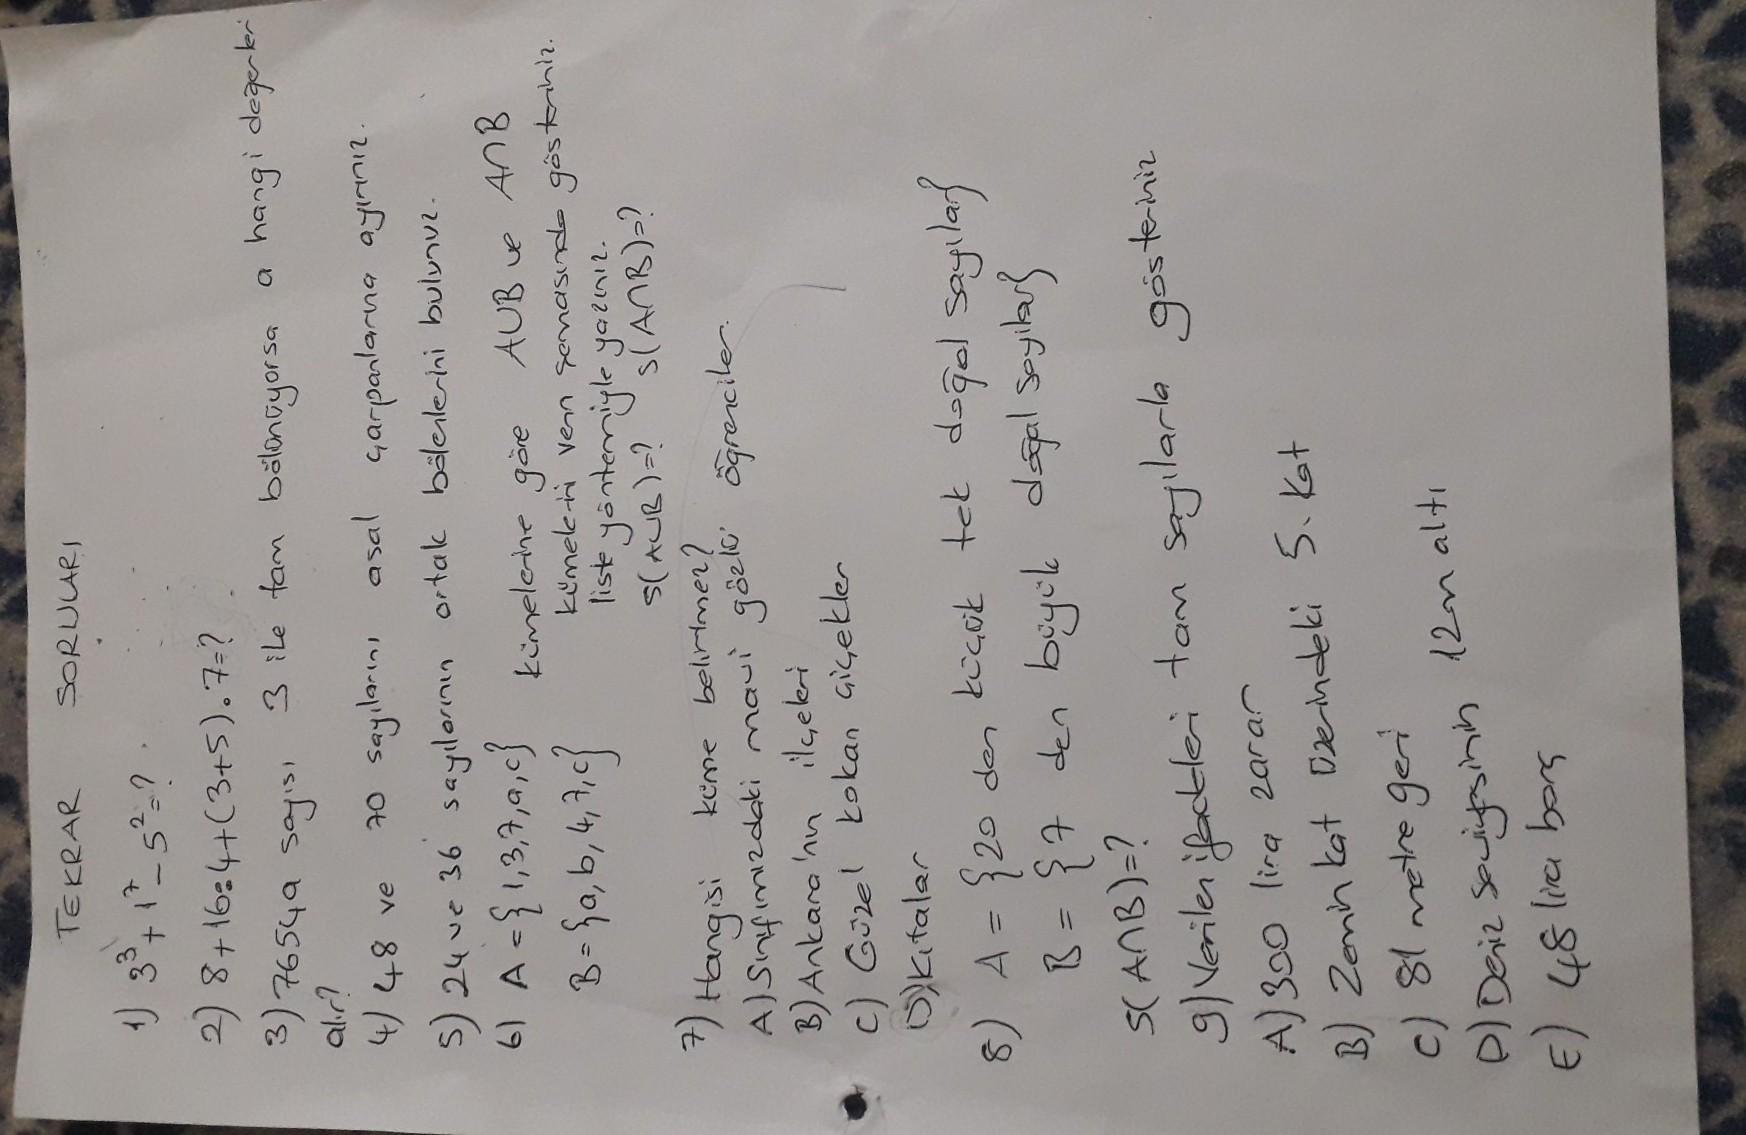 TEKRAR SORULARI
1) 3³ + 1⁷ - 5² = ?
2) 8 + 16 : 4 + (3+5) . 7 = ?
3) 7654a sayısı 3 ile tam bölünüyorsa a hangi değerleri
alır?
4) 48 ve 70 sayılarını asal çarpanlarına ayırınız.
5) 24 ve 36 sayılarının ortak bölenlerini bulunuz.
6) A = {1,3,7,a,c} kümelerine göre AUB ve A∩B
B = {a,b,4,7,c} kümelerini venn şemasında gösteriniz.
liste yöntemiyle yazınız.
s(AUB)=? s(A∩B)=?
7) Hangisi küme belirtmez?
A) Sınıfımızdaki mavi gözlü öğrenciler.
B) Ankara'nın ilçeleri
C) Güzel kokan çiçekler
D) Kıtalar
8) A = {20 den küçük tek doğal sayılar}
B = {7 den büyük doğal sayılar}
s(A∩B)=?
9) Verilen ifadeleri tam sayılarla gösteriniz
A) 300 lira zarar
B) Zemin kat üzerindeki 5. kat
C) 81 metre geri
D) Deniz seviyesinin 12m altı
E) 48 lira borç